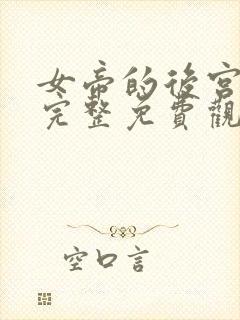 女帝的後宮
完整免費觀
空口言